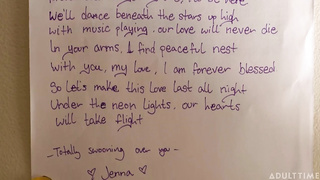 We'll dance beneath the stars up high
with music playing, our love will never die
In your arms, I find peaceful nest
With you, my love, I am forever blessed
So let's make this love last all night
Under the neon lights, our hearts
will take flight
-Totally swooning over ya-
♡ Jenna ♡
ADULTTIME